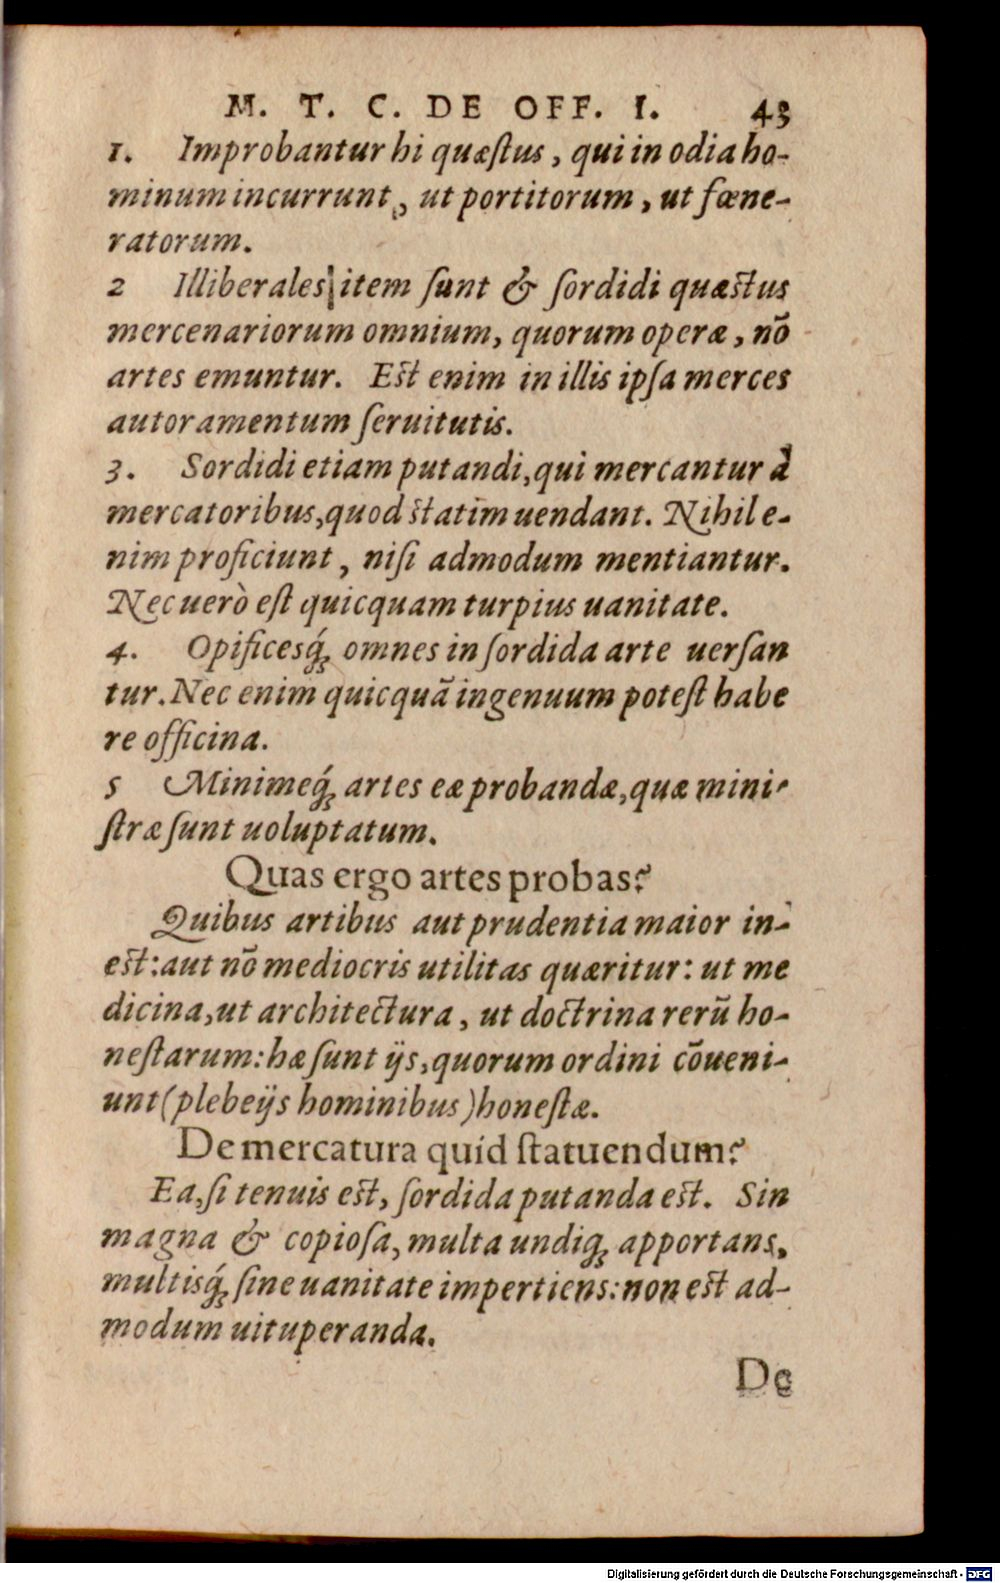 M. T. C. DE OFF. I. 43
1. Improbantur hi quæſtus, qui in odia ho-
minum incurrunt, ut portitorum, ut fœne-
ratorum.
2 Illiberales item ſunt & ſordidi quæſtus
mercenariorum omnium, quorum operæ, nō
artes emuntur. Eſt enim in illis ipſa merces
autoramentum ſeruitutis.
3. Sordidi etiam putandi, qui mercantur à
mercatoribus, quod ſtatim uendant. Nihil e-
nim proficiunt, niſi admodum mentiantur.
Nec uerò eſt quicquam turpius uanitate.
4. Opificesq́; omnes in ſordida arte uerſan
tur. Nec enim quicquā ingenuum poteſt habe
re officina.
5 Minimeq́; artes eæ probandæ, quæ mini-
ſtræ ſunt uoluptatum.
Quas ergo artes probas?
Quibus artibus aut prudentia maior in-
eſt: aut nō mediocris utilitas quæritur: ut me
dicina, ut architectura, ut doctrina rerū ho-
neſtarum: hæ ſunt ijs, quorum ordini cōueni-
unt (plebeijs hominibus) honeſtæ.
De mercatura quid ſtatuendum?
Ea, ſi tenuis eſt, ſordida putanda eſt. Sin
magna & copioſa, multa undiq; apportans,
multisq́; ſine uanitate impertiens: non eſt ad-
modum uituperanda.
De
Digitalisierung gefördert durch die Deutsche Forschungsgemeinschaft - DFG